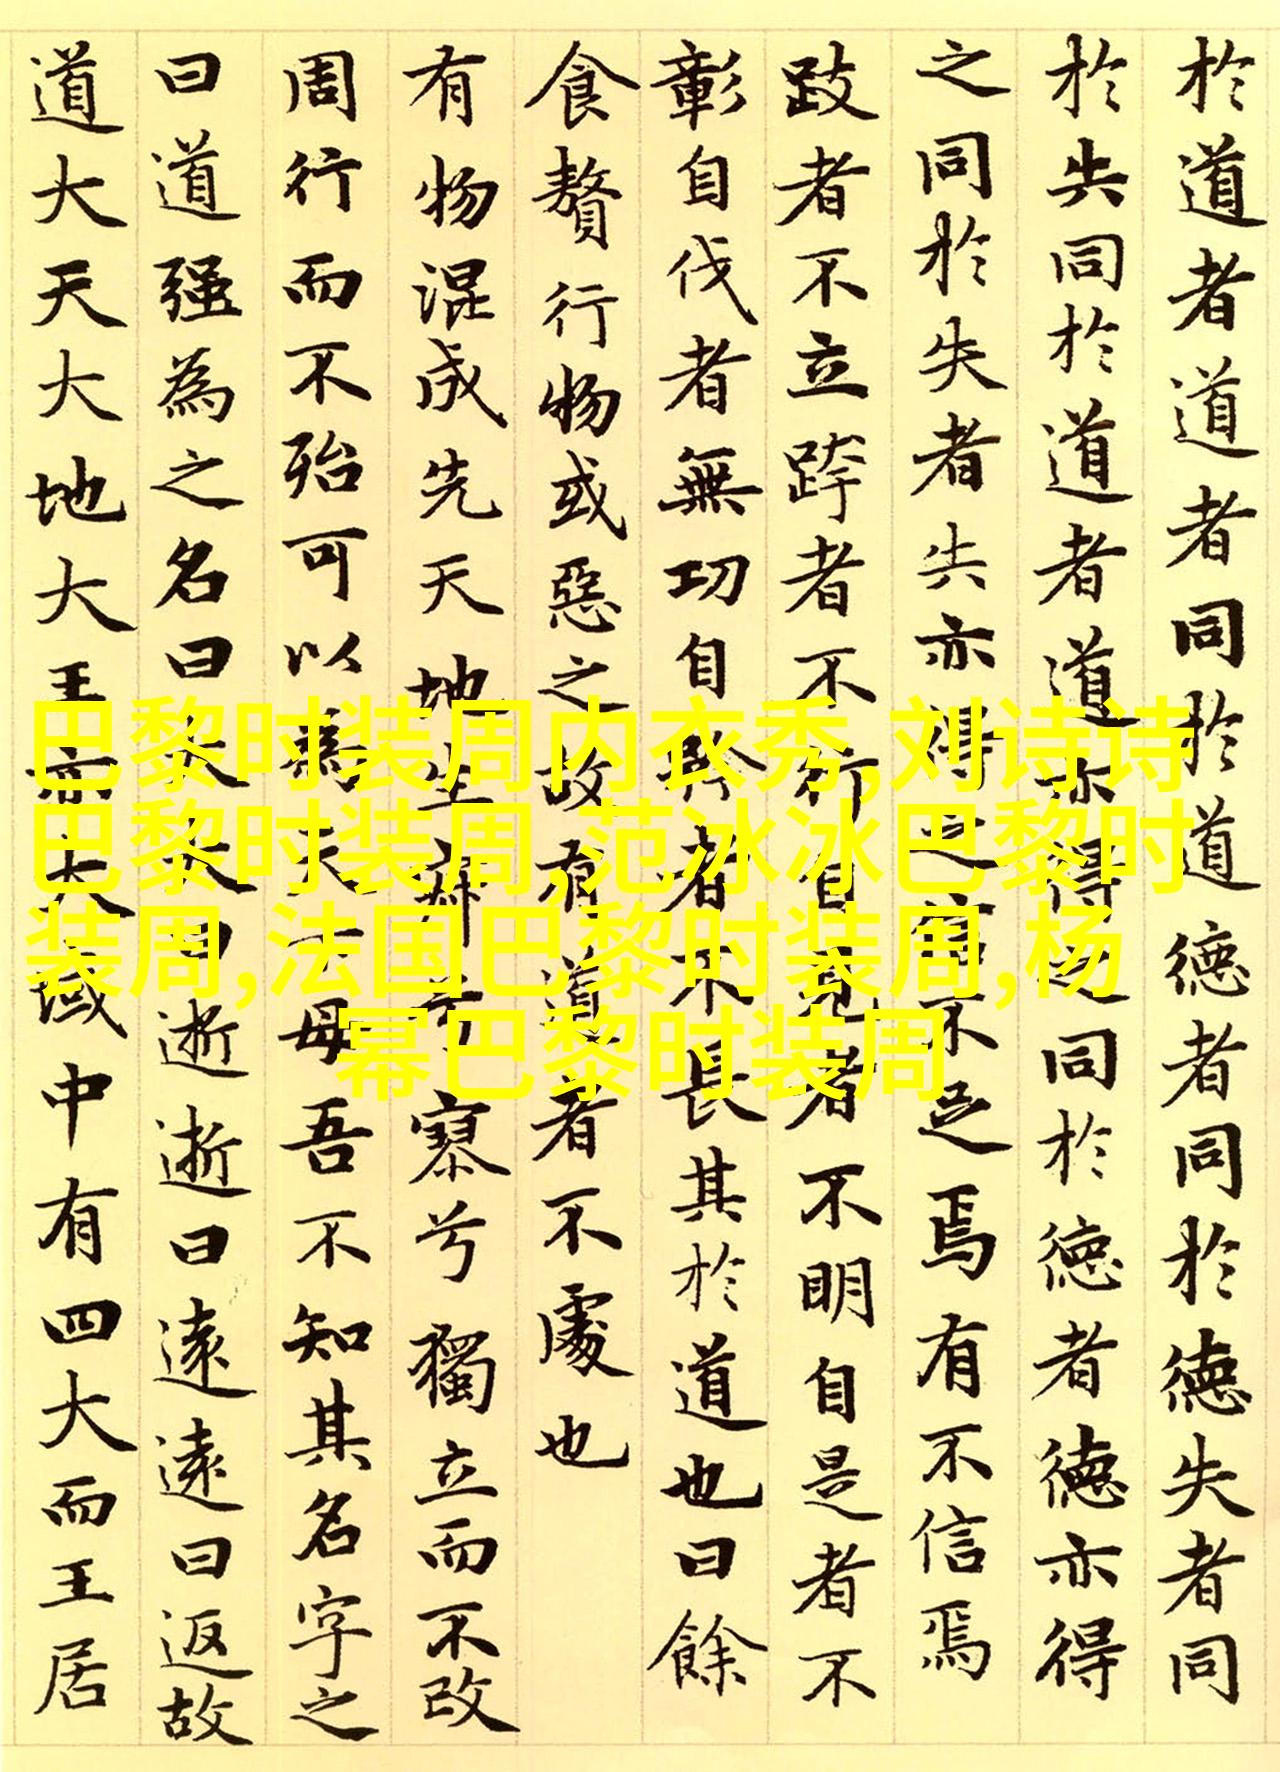 於道者道者同於道德者同於德失者同
於失同於道者道亦得之同於德者德亦得
之同於失者失亦得之信不足焉有不信焉
跂者不立跨者不行自見者不明自是者不
彰自伐者無功自矜者不長其於道也曰餘
食贅行物或惡之故有道者不處也
有物混成先天地生寂兮寥兮獨立而不改
周行而不殆可以為天下母吾不知其名字之
曰道强為之名曰大大曰逝逝曰遠遠曰返故
道大天大地大王亦大域中有四大而王居
巴黎时装周内衣秀,刘诗诗
巴黎时装周,范冰冰巴黎时
装周,法国巴黎时装周,杨
幂巴黎时装周